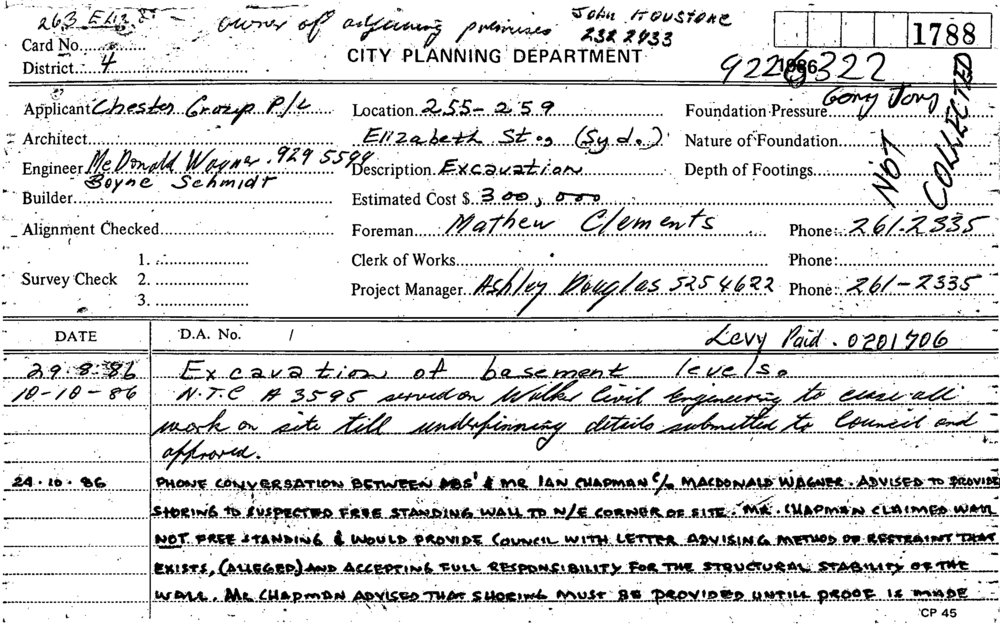 263 Eliz. St owner of adjoining premises John Houstone
232 2433
Card No.
District 4
CITY PLANNING DEPARTMENT
1788
1986
922 6322
Gony Jony
Applicant Chester Group P/L Location 255-259 Foundation Pressure
Architect Elizabeth St., (Syd.) Nature of Foundation
Engineer McDonald Wagner. 929 5599 Description Excavation Depth of Footings
Boyne Schmidt
NOT COLLECTED
Builder Estimated Cost $ 300,000
Alignment Checked Foreman Mathew Clements Phone: 261-2335
1. Clerk of Works Phone:
Survey Check 2.
Project Manager Ashley Douglas 525 4622 Phone: 261-2335
3.
DATE D.A. No. / Levy Paid. 0201706
29.8.86 Excavation of basement levels.
10-10-86 N.T.C A 3595 served on Walker Civil Engineering to cease all
work on site till underpinning details submitted to Council and
approved.
24.10.86 PHONE CONVERSATION BETWEEN & MR IAN CHAPMAN C/o MACDONALD WAGNER. ADVISED TO PROVIDE
SHORING TO SUSPECTED FREE STANDING WALL TO N/E CORNER OF SITE. MR. CHAPMAN CLAIMED WALL
NOT FREE STANDING & WOULD PROVIDE COUNCIL WITH LETTER ADVISING METHOD OF RESTRAINT THAT
EXISTS, (ALLEGED) AND ACCEPTING FULL RESPONSIBILITY FOR THE STRUCTURAL STABILITY OF THE
WALL. MR CHAPMAN ADVISED THAT SHORING MUST BE PROVIDED UNTILL PROOF IS MADE
CP 45